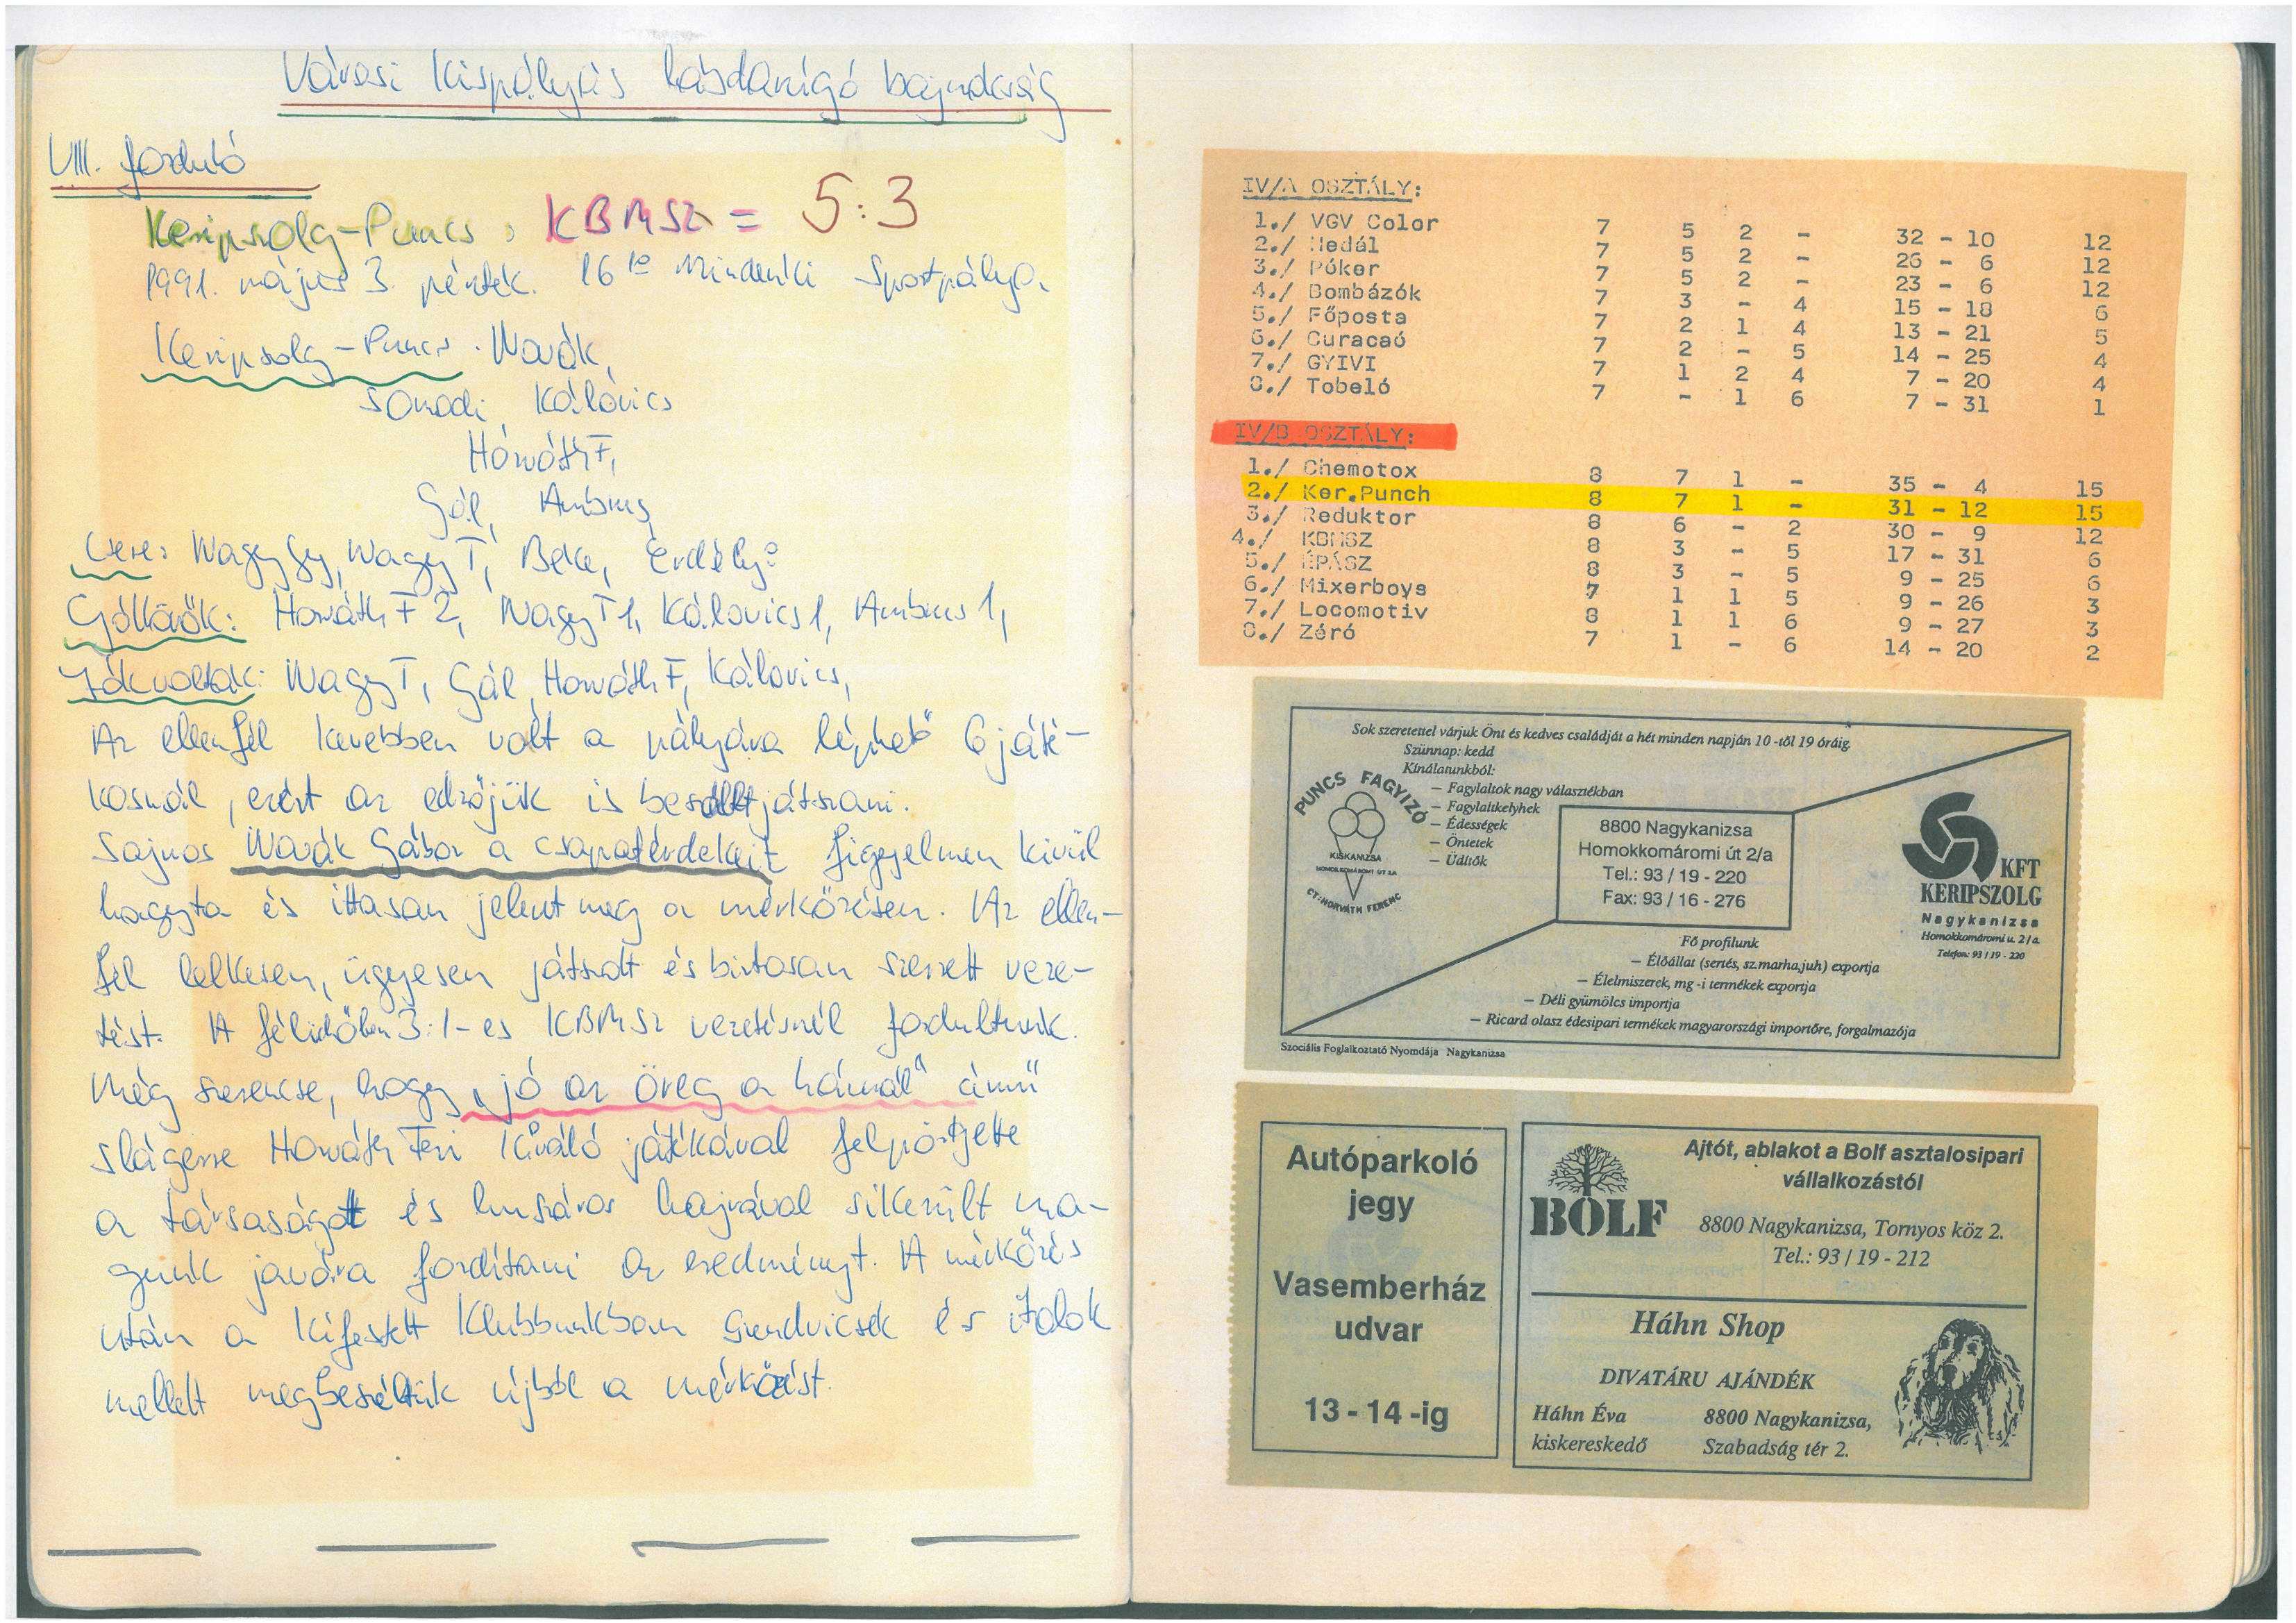 Városi Kispályás labdarúgó bajnokság
VIII. forduló
Keripszolg-Puncs : KBMSZ = 5:3
1991. május 3. péntek. 16 10 Mindenki Sportpálya.
Keripszolg-Puncs. Novák,
Somodi Kálovics
Horváth F,
Gál, Ambrus,
Csere: Nagy Gy, Nagy T, Beke, Erdélyi
Góllövők: Horváth F 2, Nagy T 1, Kálovics 1, Ambrus 1,
Jók voltak: Nagy T, Gál, Horváth F, Kálovics,
Az ellenfél kevebben volt a pályára léphető 6 játé-
kosnál, ezért az edzőjük is beszállt játszani.
Sajnos Novák Gábor a csapatérdekeit figyelmen kivül
hagyta és ittasan jelent meg a mérkőzésen. Az ellen-
fél lelkesen, ügyesen játszott és biztosan szerzett veze-
tést. A félidőben 3:1-es KBMSZ vezetésnél fordultunk.
Még szerencse, hogy „jó az öreg a háznál" című
slágerre Horváth Feri kiváló játékával felpörgette
a társaságot és huszáros hajrával sikerült ma-
gunk javára fordítani az eredményt. A mérkőzés
után a kifestett Klubbunkban szendvicsek és italok
mellett megbeszéltük újból a mérkőzést.
IV/A OSZTÁLY:
1./ VGV Color 7 5 2 - 32 - 10 12
2./ Medál 7 5 2 - 26 - 6 12
3./ Póker 7 5 2 - 23 - 6 12
4./ Bombázók 7 3 - 4 15 - 18 6
5./ Főposta 7 2 1 4 13 - 21 5
6./ Curacaó 7 2 - 5 14 - 25 4
7./ GYIVI 7 1 2 4 7 - 20 4
8./ Tobeló 7 - 1 6 7 - 31 1
IV/B OSZTÁLY:
1./ Chemotox 8 7 1 - 35 - 4 15
2./ Ker.Punch 8 7 1 - 31 - 12 15
3./ Reduktor 8 6 - 2 30 - 9 12
4./ KBMSZ 8 3 - 5 17 - 31 6
5./ ÉPÁSZ 8 3 - 5 9 - 25 6
6./ Mixerboys 7 1 1 5 9 - 26 3
7./ Locomotiv 8 1 1 6 9 - 27 3
8./ Zéró 7 1 - 6 14 - 20 2
Sok szeretettel várjuk Önt és kedves családját a hét minden napján 10 -től 19 óráig.
Szünnap: kedd
Kínálatunkból:
– Fagylaltok nagy választékban
– Fagylaltkelyhek
– Édességek
– Öntetek
– Üdítők
PUNCS FAGYIZÓ
KISKANIZSA
HOMOKKOMÁROMI ÚT 2/A
CT: HORVÁTH FERENC
8800 Nagykanizsa
Homokkomáromi út 2/a
Tel.: 93 / 19 - 220
Fax: 93 / 16 - 276
KFT
KERIPSZOLG
Nagykanizsa
Homokkomáromi u. 2/a.
Telefon: 93 / 19 - 220
Fő profilunk
– Élőállat (sertés, sz.marha,juh) exportja
– Élelmiszerek, mg -i termékek exportja
– Déli gyümölcs importja
– Ricard olasz édesipari termékek magyarországi importőre, forgalmazója
Szociális Foglalkoztató Nyomdája Nagykanizsa
Autóparkoló
jegy
Vasemberház
udvar
13 - 14 -ig
BOLF
Ajtót, ablakot a Bolf asztalosipari
vállalkozástól
8800 Nagykanizsa, Tornyos köz 2.
Tel.: 93 / 19 - 212
Háhn Shop
DIVATÁRU AJÁNDÉK
Háhn Éva
kiskereskedő
8800 Nagykanizsa,
Szabadság tér 2.